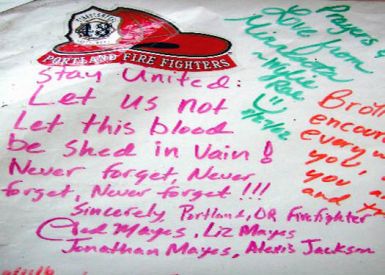 PORTLAND FIRE FIGHTERS
Stay United:
Let us not
Let this blood
be shed in Vain!
Never forget, Never
forget, Never forget!!!
Sincerely Portland, OR Firefighter
Mayes, Liz Mayes
Jonathan Mayes, Alexis Jackson
Prayers &
Love from
Brot
encour
every
you,
you
and